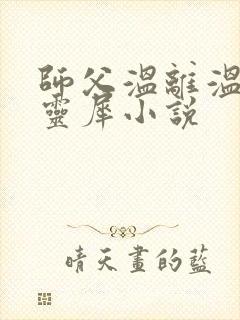 師父溫離溫
靈犀小說
晴天畫的藍